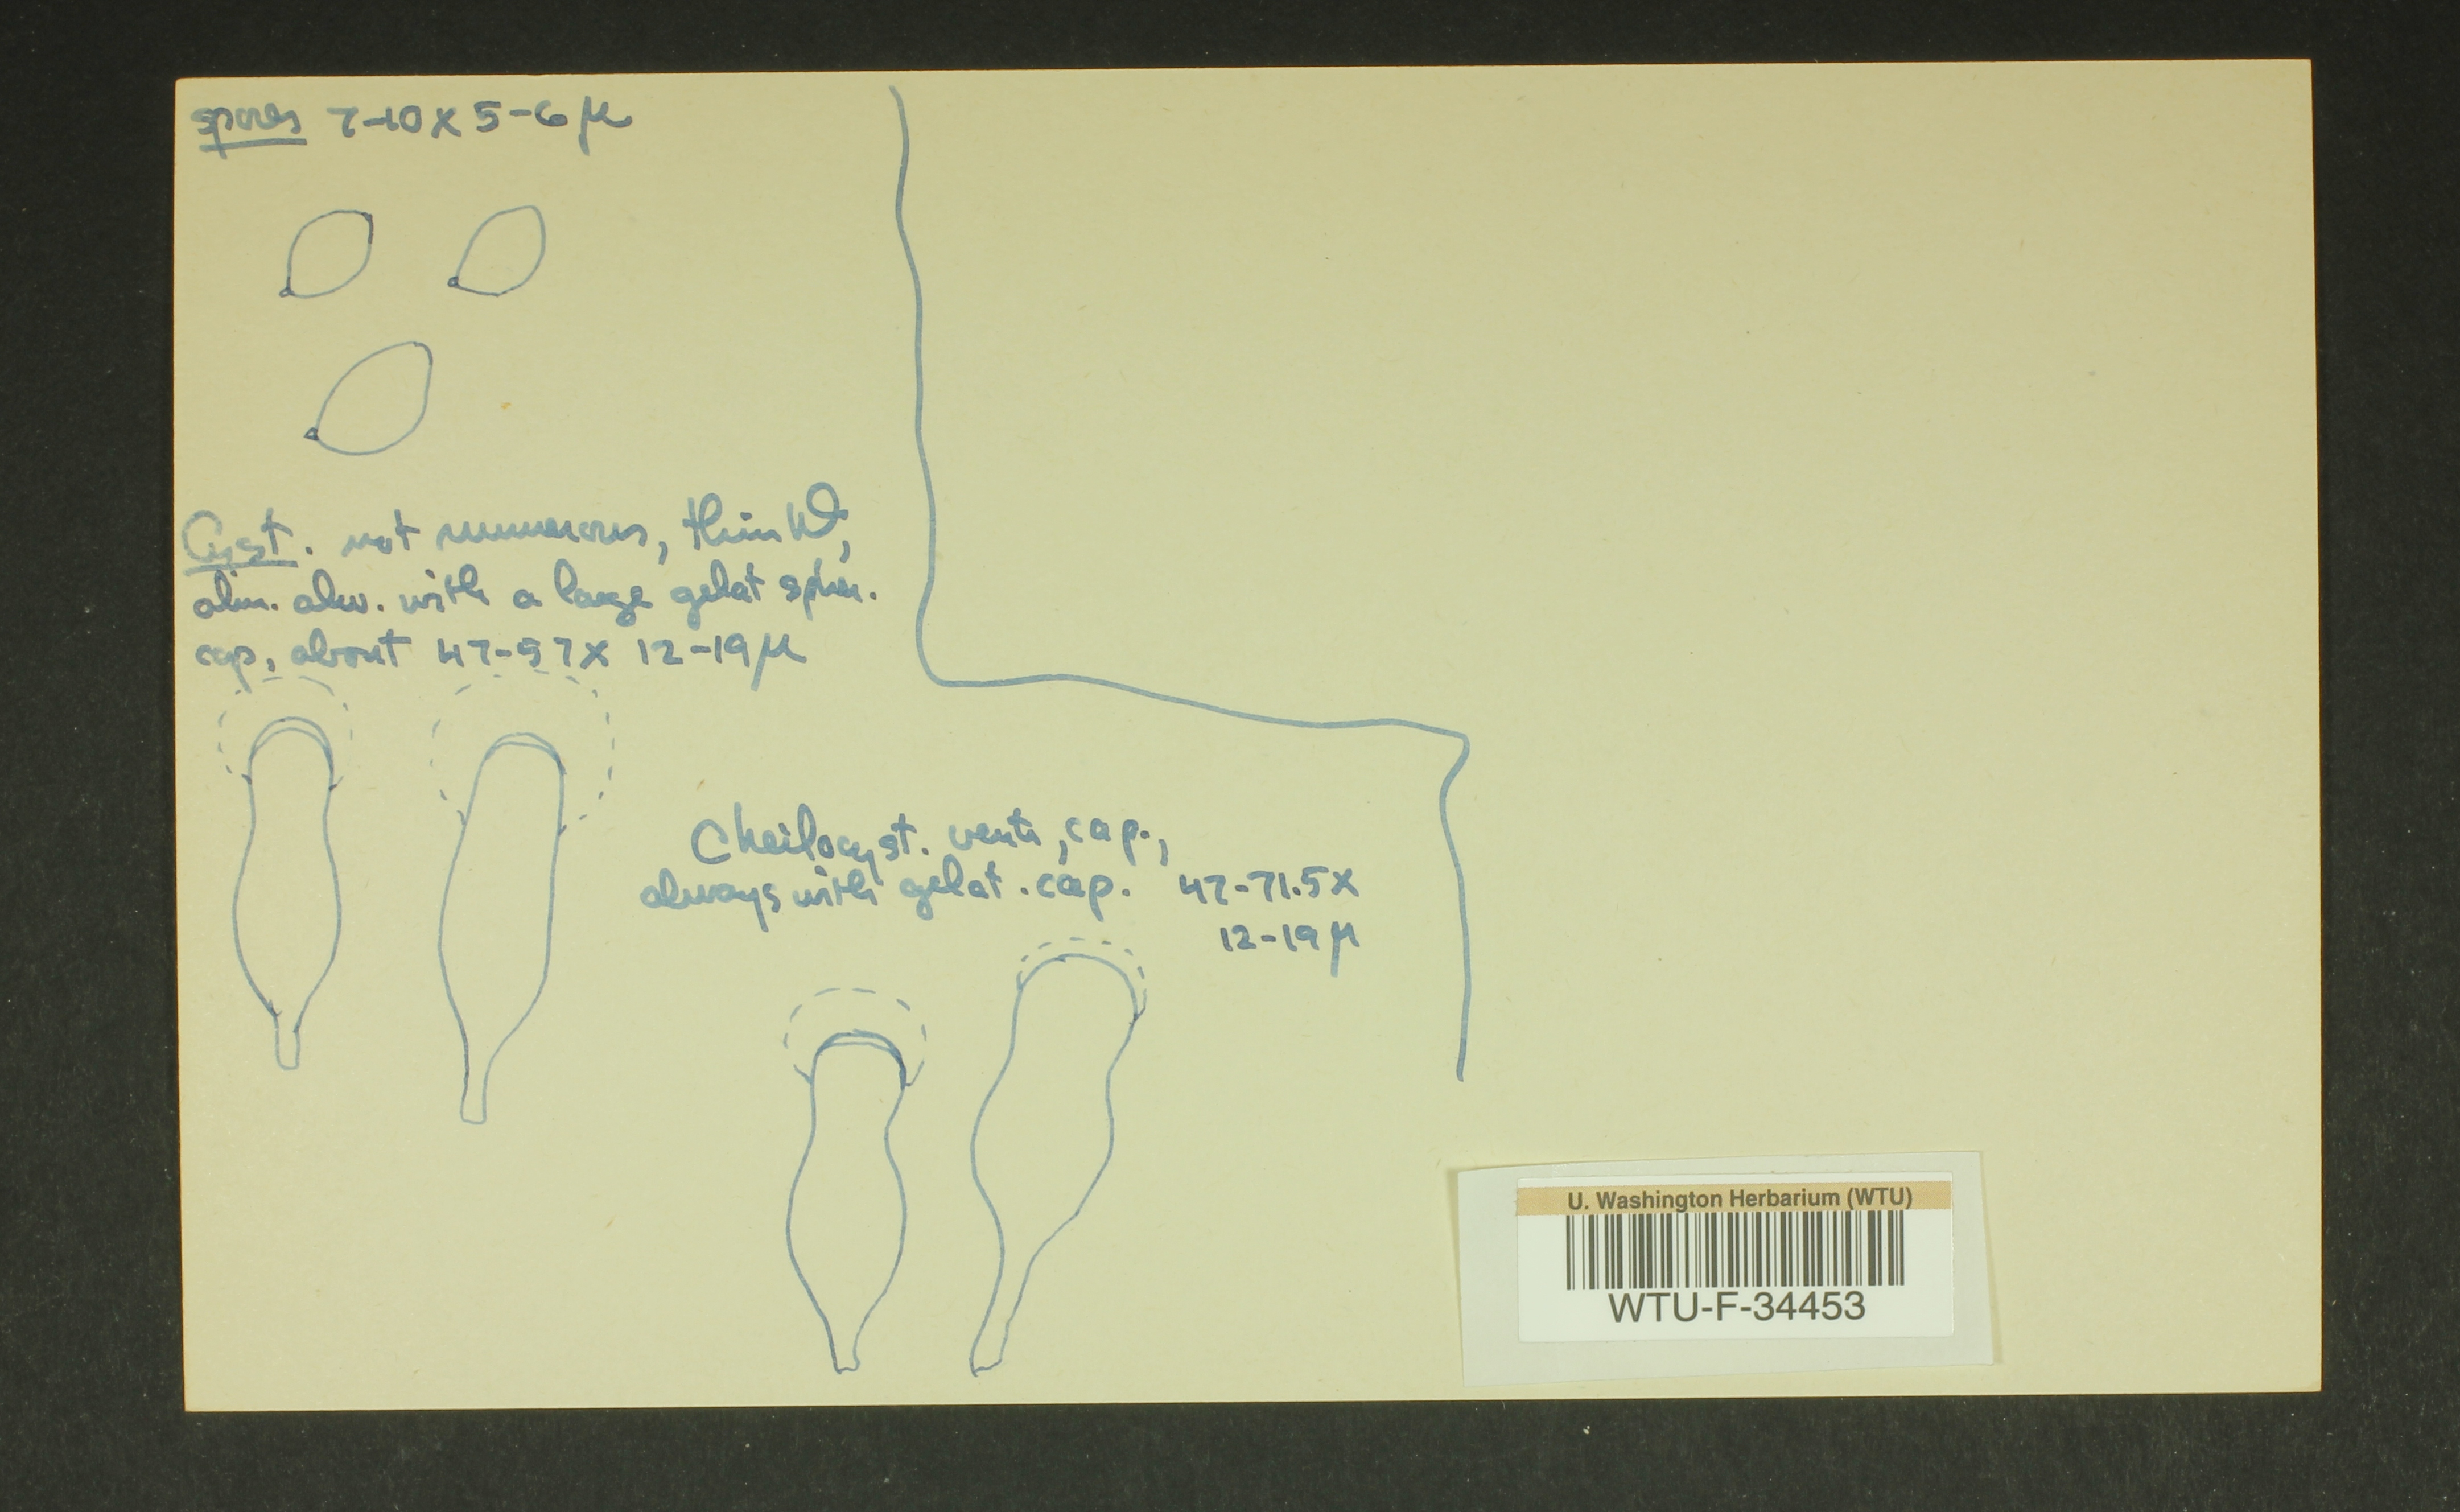 spores 7-10 x 5-6 μ
Cyst. not numerous, thin W,
alm. alw. with a large gelat spher.
cap, about 47-57 x 12-19 μ
Cheilocyst. ventr, cap.,
always with gelat. cap. 47-71.5 x
12-19 μ
U. Washington Herbarium (WTU)
WTU-F-34453